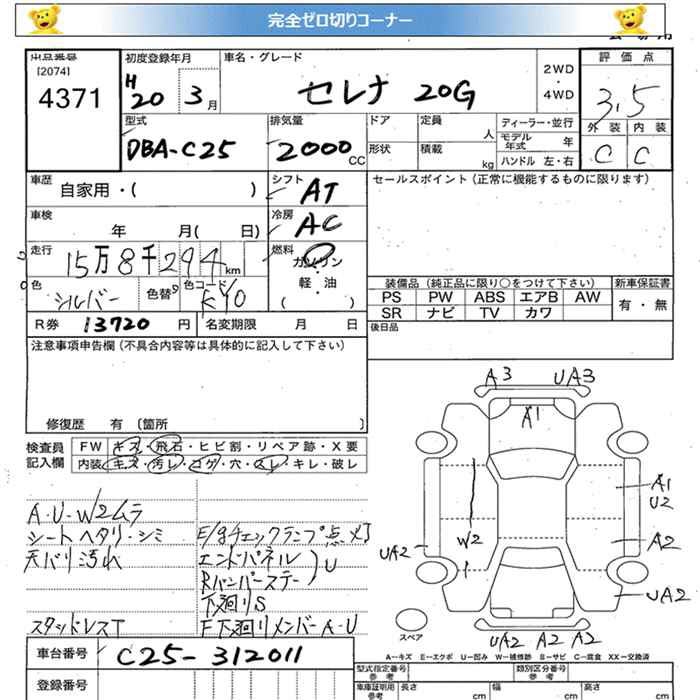 完全ゼロ切りコーナー
出品番号
[2074]
4371
初度登録年月
H
20年 3月
車名・グレード
セレナ 20G
2WD
4WD
評価点
3.5
外装 内装
C C
型式
DBA-C25
排気量
2000 CC
ドア
形状
定員
人
積載
kg
ディーラー・並行
モデル年式 年
ハンドル 左・右
車歴
自家用・( )
シフト
AT
セールスポイント(正常に機能するものに限ります)
車検
年 月( 日)
冷房
AC
走行
15万8千294km
燃料
ガソリン
・
軽・油
( )
色
シルバー
色替
色コード
KY0
装備品(純正品に限り○をつけて下さい)
新車保証書
PS PW ABS エアB AW
SR ナビ TV カワ
有・無
R券 13720円
名変期限 月 日
後日品
注意事項申告欄(不具合内容等は具体的に記入して下さい)
修復歴 有 〔箇所 〕
検査員
記入欄
FW キズ・飛石・ヒビ割・リペア跡・X要
内装 キズ・汚レ・コゲ・穴・スレ・キレ・破レ
A・U・W2ムラ
シートヘタリ・シミ
天バリ汚れ
スタッドレスT
E/gチェックランプ点メ
エンドパネル
Rバンパーステー
U
下廻りS
F下廻りメンバーA・U
A3 UA3
A1
A1
U2
W2
A2
UA2
UA2
UA2 A2 A2
スペア
A-キズ E-エクボ U-凹み W-補修跡 S-サビ C-腐食 XX-交換済
車台番号
C25-312011
登録番号
型式指定番号
参考
類別区分番号
参考
車庫証明用
参考
長さ cm
幅 cm
高さ cm